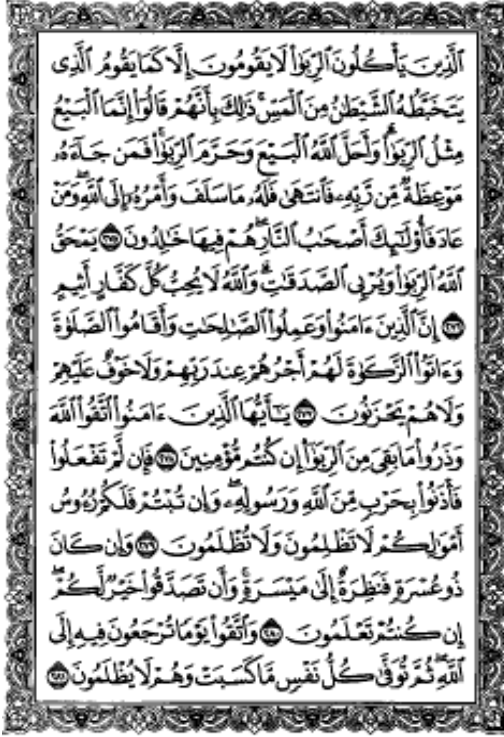 ٱلَّذِينَ يَأْكُلُونَ ٱلرِّبَوٰا۟ لَا يَقُومُونَ إِلَّا كَمَا يَقُومُ ٱلَّذِى
يَتَخَبَّطُهُ ٱلشَّيْطَٰنُ مِنَ ٱلْمَسِّ ۚ ذَٰلِكَ بِأَنَّهُمْ قَالُوٓا۟ إِنَّمَا ٱلْبَيْعُ
مِثْلُ ٱلرِّبَوٰا۟ ۗ وَأَحَلَّ ٱللَّهُ ٱلْبَيْعَ وَحَرَّمَ ٱلرِّبَوٰا۟ ۚ فَمَن جَآءَهُۥ
مَوْعِظَةٌ مِّن رَّبِّهِۦ فَٱنتَهَىٰ فَلَهُۥ مَا سَلَفَ وَأَمْرُهُۥٓ إِلَى ٱللَّهِ ۖ وَمَنْ
عَادَ فَأُو۟لَٰٓئِكَ أَصْحَٰبُ ٱلنَّارِ ۖ هُمْ فِيهَا خَٰلِدُونَ ۝٢٧٥ يَمْحَقُ
ٱللَّهُ ٱلرِّبَوٰا۟ وَيُرْبِى ٱلصَّدَقَٰتِ ۗ وَٱللَّهُ لَا يُحِبُّ كُلَّ كَفَّارٍ أَثِيمٍ
۝٢٧٦ إِنَّ ٱلَّذِينَ ءَامَنُوا۟ وَعَمِلُوا۟ ٱلصَّٰلِحَٰتِ وَأَقَامُوا۟ ٱلصَّلَوٰةَ
وَءَاتَوُا۟ ٱلزَّكَوٰةَ لَهُمْ أَجْرُهُمْ عِندَ رَبِّهِمْ وَلَا خَوْفٌ عَلَيْهِمْ
وَلَا هُمْ يَحْزَنُونَ ۝٢٧٧ يَٰٓأَيُّهَا ٱلَّذِينَ ءَامَنُوا۟ ٱتَّقُوا۟ ٱللَّهَ
وَذَرُوا۟ مَا بَقِىَ مِنَ ٱلرِّبَوٰٓا۟ إِن كُنتُم مُّؤْمِنِينَ ۝٢٧٨ فَإِن لَّمْ تَفْعَلُوا۟
فَأْذَنُوا۟ بِحَرْبٍ مِّنَ ٱللَّهِ وَرَسُولِهِۦ ۖ وَإِن تُبْتُمْ فَلَكُمْ رُءُوسُ
أَمْوَٰلِكُمْ لَا تَظْلِمُونَ وَلَا تُظْلَمُونَ ۝٢٧٩ وَإِن كَانَ
ذُو عُسْرَةٍ فَنَظِرَةٌ إِلَىٰ مَيْسَرَةٍ ۚ وَأَن تَصَدَّقُوا۟ خَيْرٌ لَّكُمْ ۖ
إِن كُنتُمْ تَعْلَمُونَ ۝٢٨٠ وَٱتَّقُوا۟ يَوْمًا تُرْجَعُونَ فِيهِ إِلَى
ٱللَّهِ ۖ ثُمَّ تُوَفَّىٰ كُلُّ نَفْسٍ مَّا كَسَبَتْ وَهُمْ لَا يُظْلَمُونَ ۝٢٨١